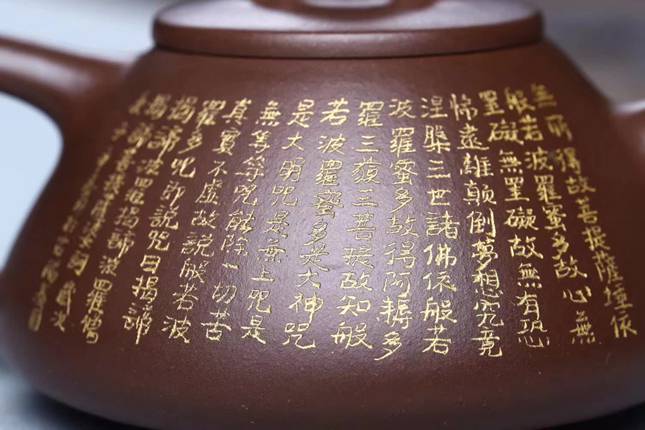 無所得故菩提薩埵依
般若波羅蜜多故心無
罣礙無罣礙故無有恐
怖遠離顛倒夢想究竟
涅槃三世諸佛依般若
波羅蜜多故得阿耨多
羅三藐三菩提故知般
若波羅蜜多是大神咒
是大明咒是無上咒是
無等等咒能除一切苦
真實不虛故說般若波
羅多咒即說咒曰揭諦
揭諦波羅揭諦波羅僧